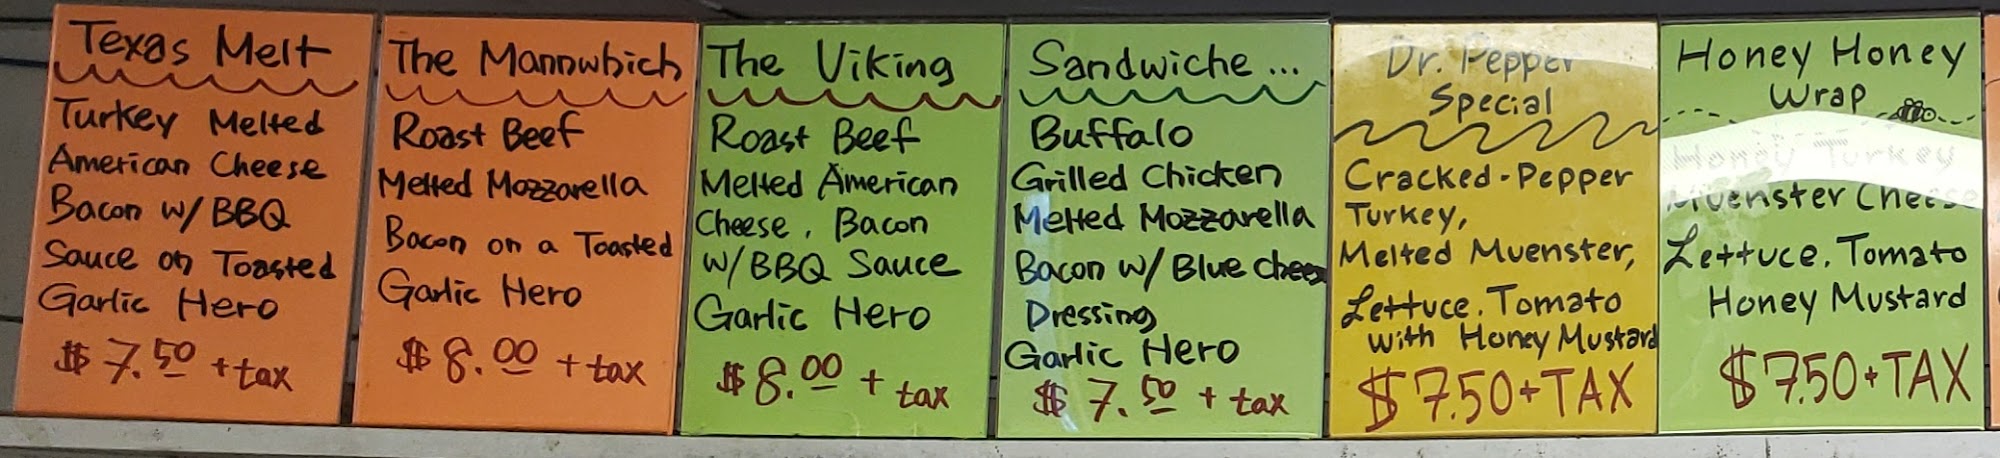 Texas Melt
Turkey Melted
American Cheese
Bacon w/ BBQ
Sauce on Toasted
Garlic Hero
$7.50 + tax
The Mannwhich
Roast Beef
Melted Mozzarella
Bacon on a Toasted
Garlic Hero
$8.00 + tax
The Viking
Roast Beef
Melted American
Cheese, Bacon
w/ BBQ Sauce
Garlic Hero
$8.00 + tax
Sandwiche ...
Buffalo
Grilled Chicken
Melted Mozzarella
Bacon w/ Blue cheese
Dressing
Garlic Hero
$7.50 + tax
Dr. Pepper
Special
Cracked-Pepper
Turkey,
Melted Muenster,
Lettuce, Tomato
with Honey Mustard
$7.50+TAX
Honey Honey
Wrap
Honey Turkey
Muenster Cheese
Lettuce, Tomato
Honey Mustard
$7.50+TAX